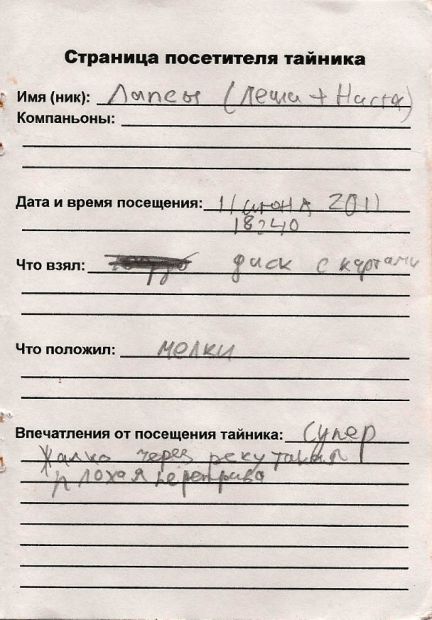 Страница посетителя тайника
Имя (ник): Лапсы (Леша + Настя)
Компаньоны:
Дата и время посещения: 11 июня 2011
18:40
Что взял: диск с картами
Что положил: мелки
Впечатления от посещения тайника: супер
Жалко через реку такая
плохая переправа